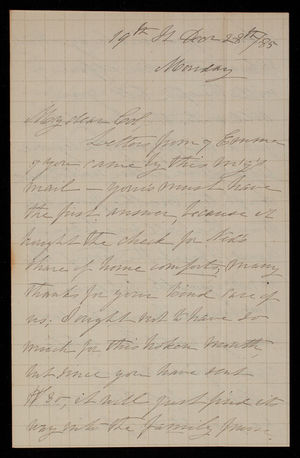 19th St Dec 28th/85
Monday
My dear Col,
Letters from Emma
& you came by this m'g's
mail - yours must have
the first answer, because it
bought the check for Ned's
share of home comforts, many
thanks for your kind care of
us; I ought not to have so
much for this broken month,
but since you have sent
$80, it will just find its
way into the family purse.